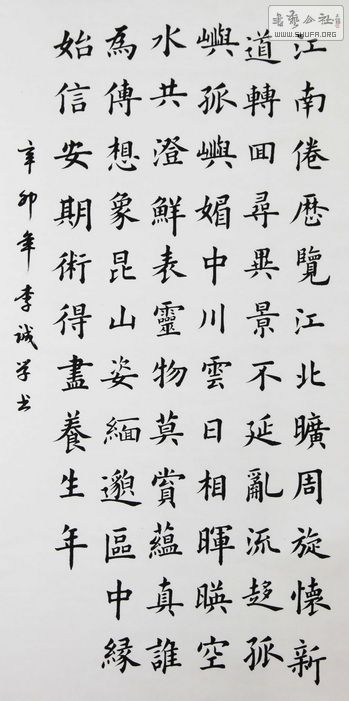 書藝公社
WWW.SHUFA.ORG
江南倦歷覽江北曠周旋懷新
道轉回尋異景不延亂流趍孤
嶼孤嶼媚中川雲日相暉暎空
水共澄鮮表靈物莫賞蘊真誰
為傳想象昆山姿緬邈區中緣
始信安期術得盡養生年
辛卯年李誠学书